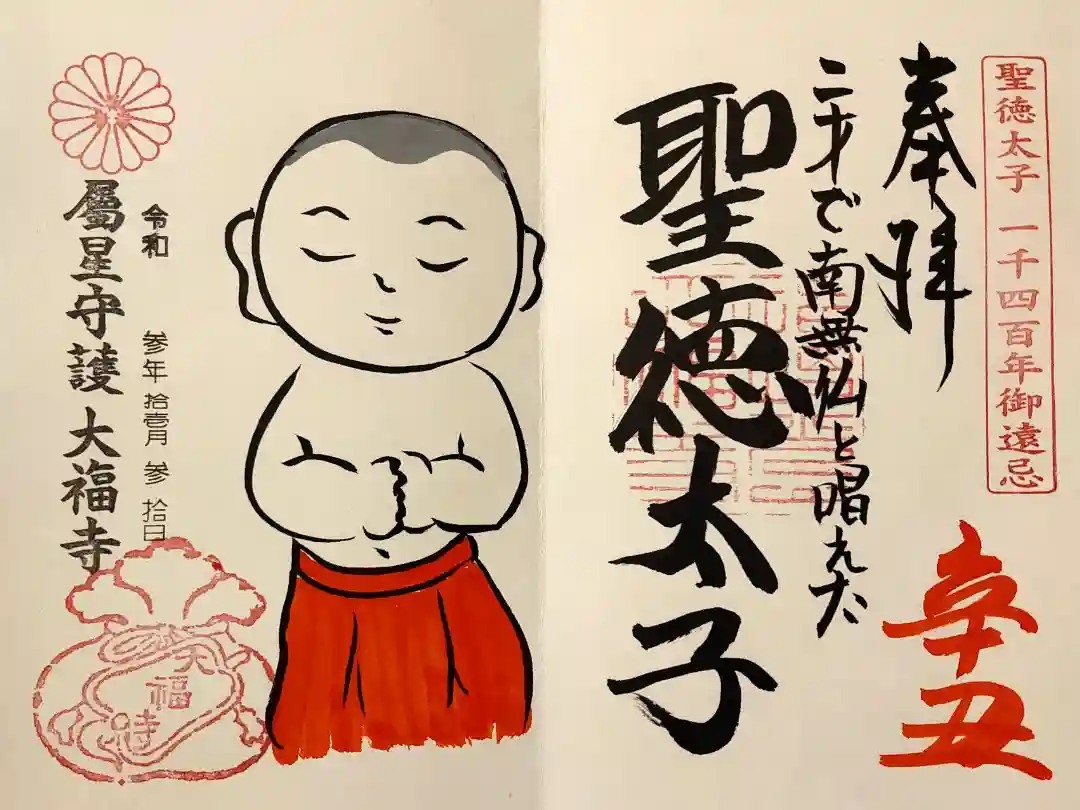 聖徳太子 一千四百年御遠忌
奉拝
辛丑
二才で南無仏と唱えた
聖徳太子
令和 参年 拾壱月 参拾日
屬星守護 大福寺
大福寺